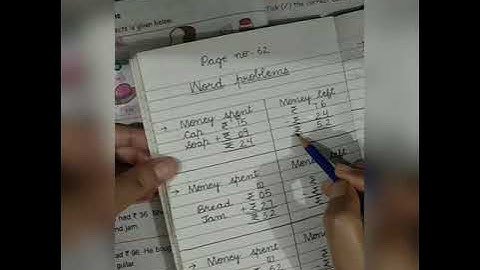 ects is given below.
Tick (✓) the correct
Page no-62
Word problems
→ Money spent
Cap ₹ 15
Soap + ₹ 09
₹ 24
Money left
₹ 76
₹ 24
₹ 52
→ Money spent
Bread
Jam + ₹ 27
Money left
→ Money spent
had ₹ 36.
and jam.
ad ₹ 96. He boug
guitar.